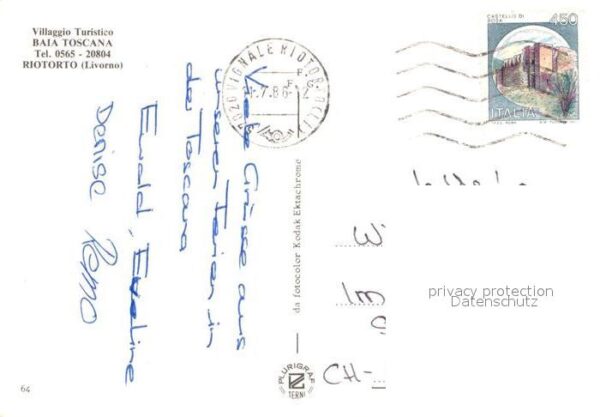 Villaggio Turistico
BAIA TOSCANA
Tel. 0565 - 20804
RIOTORTO (Livorno)
CASTELLO DI
ROSA
450
ITALIA
VIGNALE RIOTOR
.7.86-12
F.
F.
Viele Grüsse aus
unseren Ferien in
der Toscana
Ewald, Eveline
Denise Remo
da fotocolor Kodak Ektachrome
W
Im
S
CH-
privacy protection
Datenschutz
PLURIGRAF
TERNI
64